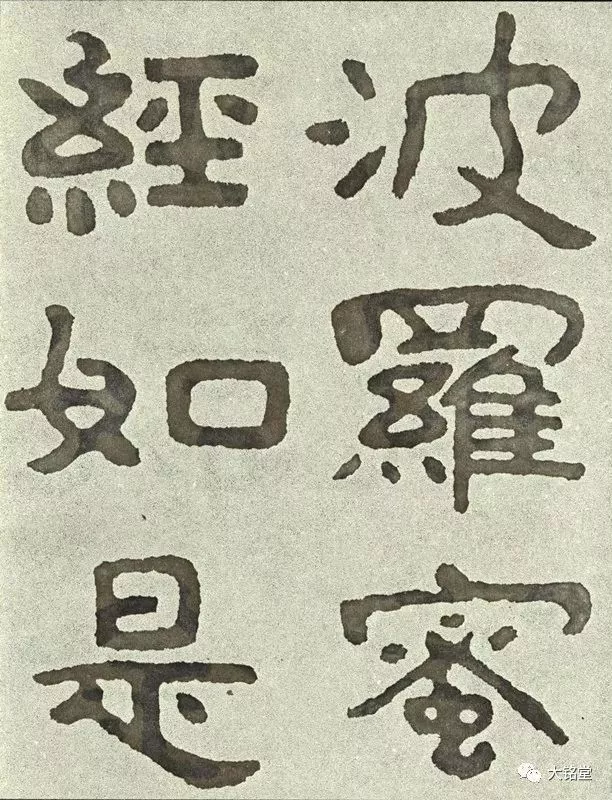 波羅蜜
經如是
大铭堂